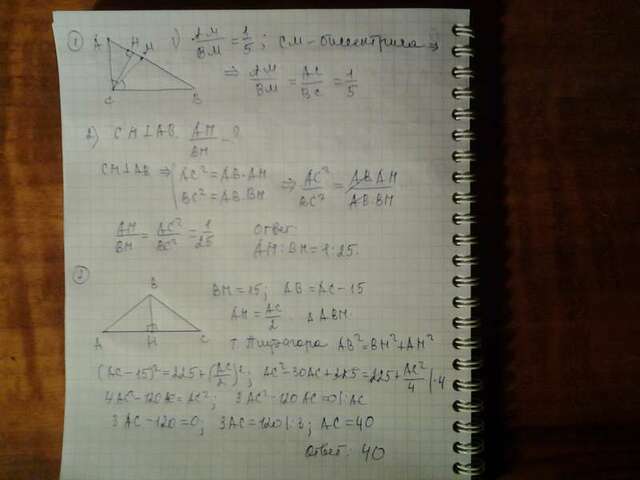 ① A H M C B 1) AM/BM = 1/5; CM - биссектриса ⇒
⇒ AM/BM = AC/BC = 1/5
2) CH⊥AB. AH/BH - ?
CH⊥AB ⇒ { AC² = AB·AH BC² = AB·BH ⇒ AC²/BC² = AB·AH/AB·BH
AH/BH = AC²/BC² = 1/25 Ответ:
AH:BH = 1:25.
② B A H C BH = 15; AB = AC - 15
AH = AC/2. △ABH
т. Пифагора AB² = BH² + AH²
(AC-15)² = 225 + (AC/2)²; AC² - 30AC + 225 = 225 + AC²/4 |·4
4AC² - 120AC = AC²; 3AC² - 120AC = 0 |:AC
3AC - 120 = 0; 3AC = 120 |:3; AC = 40
Ответ: 40